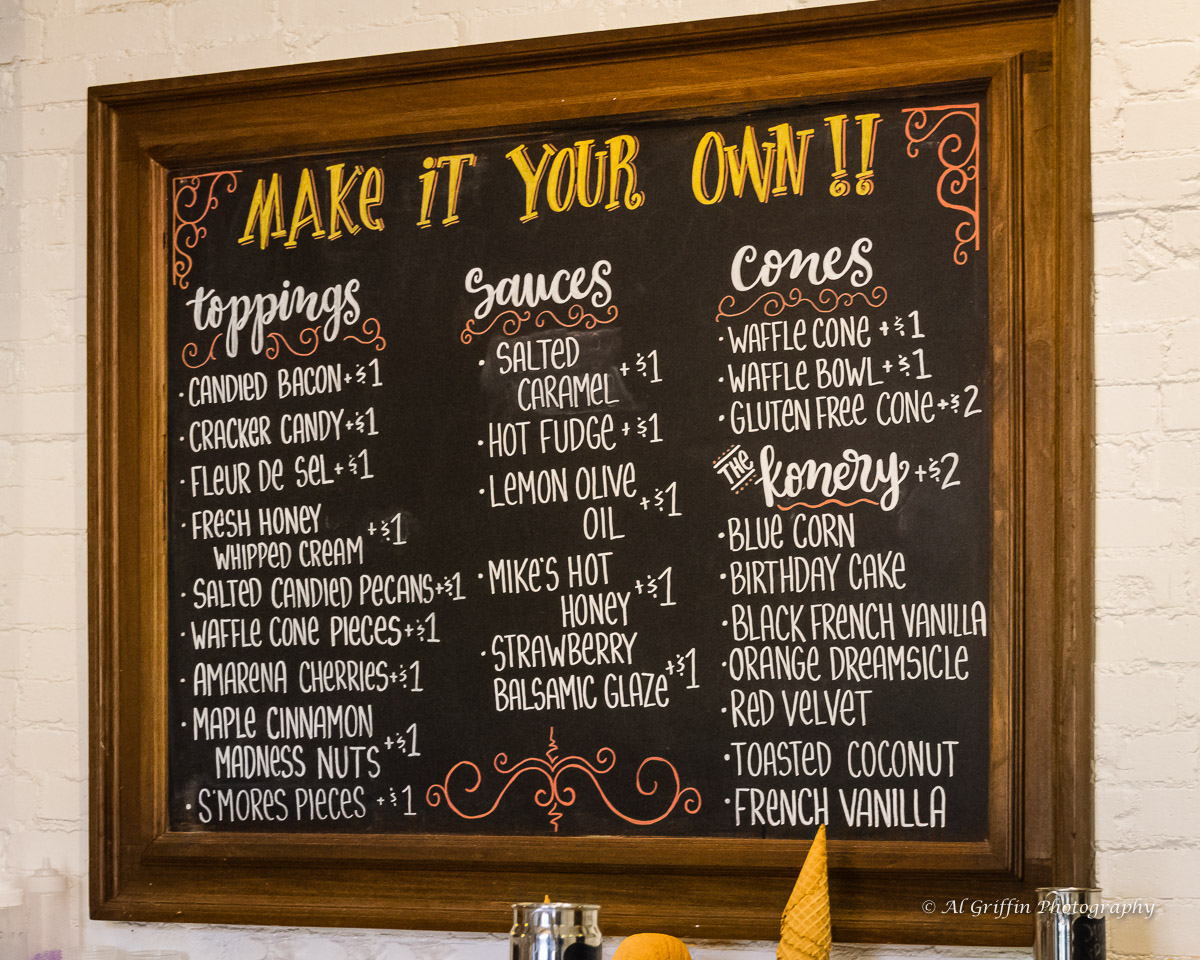 MAKE iT YOUR OWN!!
toppings
• CANDIED BACON +$1
• CRACKER CANDY +$1
• FLEUR DE SEL +$1
• FRESH HONEY
WHIPPED CREAM +$1
• SALTED CANDIED PECANS +$1
• WAFFLE CONE PIECES +$1
• AMARENA CHERRIES +$1
• MAPLE CINNAMON
MADNESS NUTS +$1
• S'MORES PIECES +$1
Sauces
• SALTED
CARAMEL +$1
• HOT FUDGE +$1
• LEMON OLIVE
OIL +$1
• MIKE'S HOT
HONEY +$1
• STRAWBERRY
BALSAMIC GLAZE +$1
Cones
• WAFFLE CONE +$1
• WAFFLE BOWL +$1
• GLUTEN FREE CONE +$2
THE konery +$2
• BLUE CORN
• BIRTHDAY CAKE
• BLACK FRENCH VANILLA
• ORANGE DREAMSICLE
• RED VELVET
• TOASTED COCONUT
• FRENCH VANILLA
© Al Griffin Photography